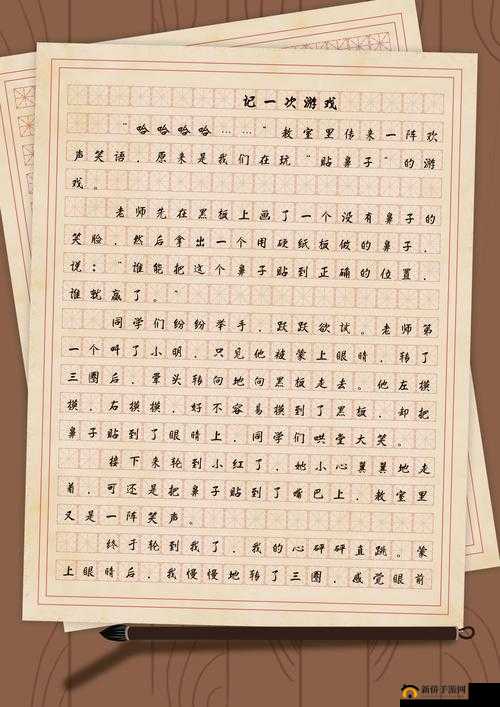 记一次游戏
“哈哈哈哈……”教室里传来一阵欢
声笑语，原来是我们在玩“贴鼻子”的游
戏。
老师先在黑板上画了一个没有鼻子的
笑脸，然后拿出一个用硬纸板做的鼻子，
说：“谁能把这个鼻子贴到正确的位置，
谁就赢了。”
同学们纷纷举手，跃跃欲试。老师第
一个叫了小明，只见他被蒙上眼睛，转了
三圈后，晕头转向地向黑板走去。他左摸
摸，右摸摸，好不容易摸到了黑板，却把
鼻子贴到了眼睛上，同学们哄堂大笑。
接下来轮到小红了，她小心翼翼地走
着，可还是把鼻子贴到了嘴巴上，教室里
又是一阵笑声。
终于轮到我了，我的心砰砰直跳。蒙
上眼睛后，我慢慢地转了三圈，感觉眼前
新侨手游网